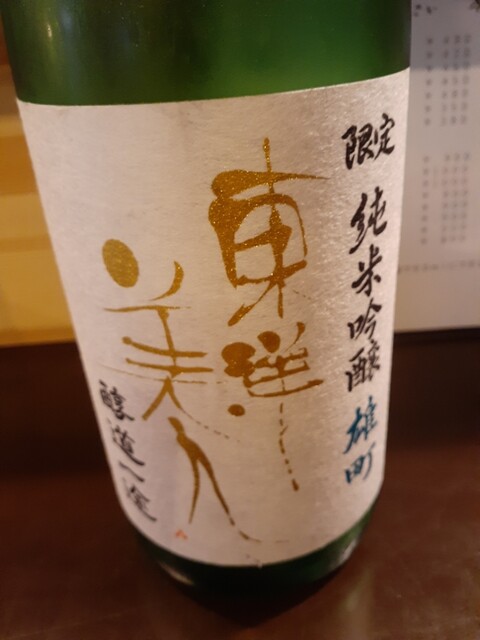 限定 純米吟醸 雄町
東洋
美人
醇道一途